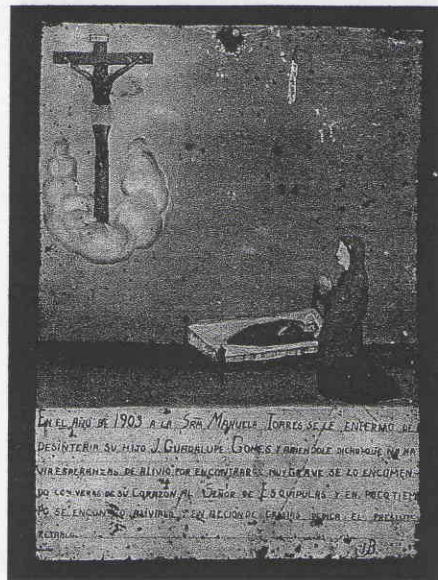 EN EL AÑO DE 1903 A LA SRA MANUELA TORRES SE LE ENFERMO DE
DESINTERIA SU HIJO J. GUADALUPE GOMES Y ABIENDOLE DICHO QUE NO HA
VIA ESPERANZAS DE ALIVIO POR ENCONTRARSE MUY GRAVE SE LO ENCOMEN
DO CON VERAS DE SU CORAZON, AL SEÑOR DE ESQUIPULAS Y EN POCO TIEM
PO SE ENCONTRO ALIVIADO Y EN ACCION DE GRACIAS DEDICA EL PRESENTE
RETABLO